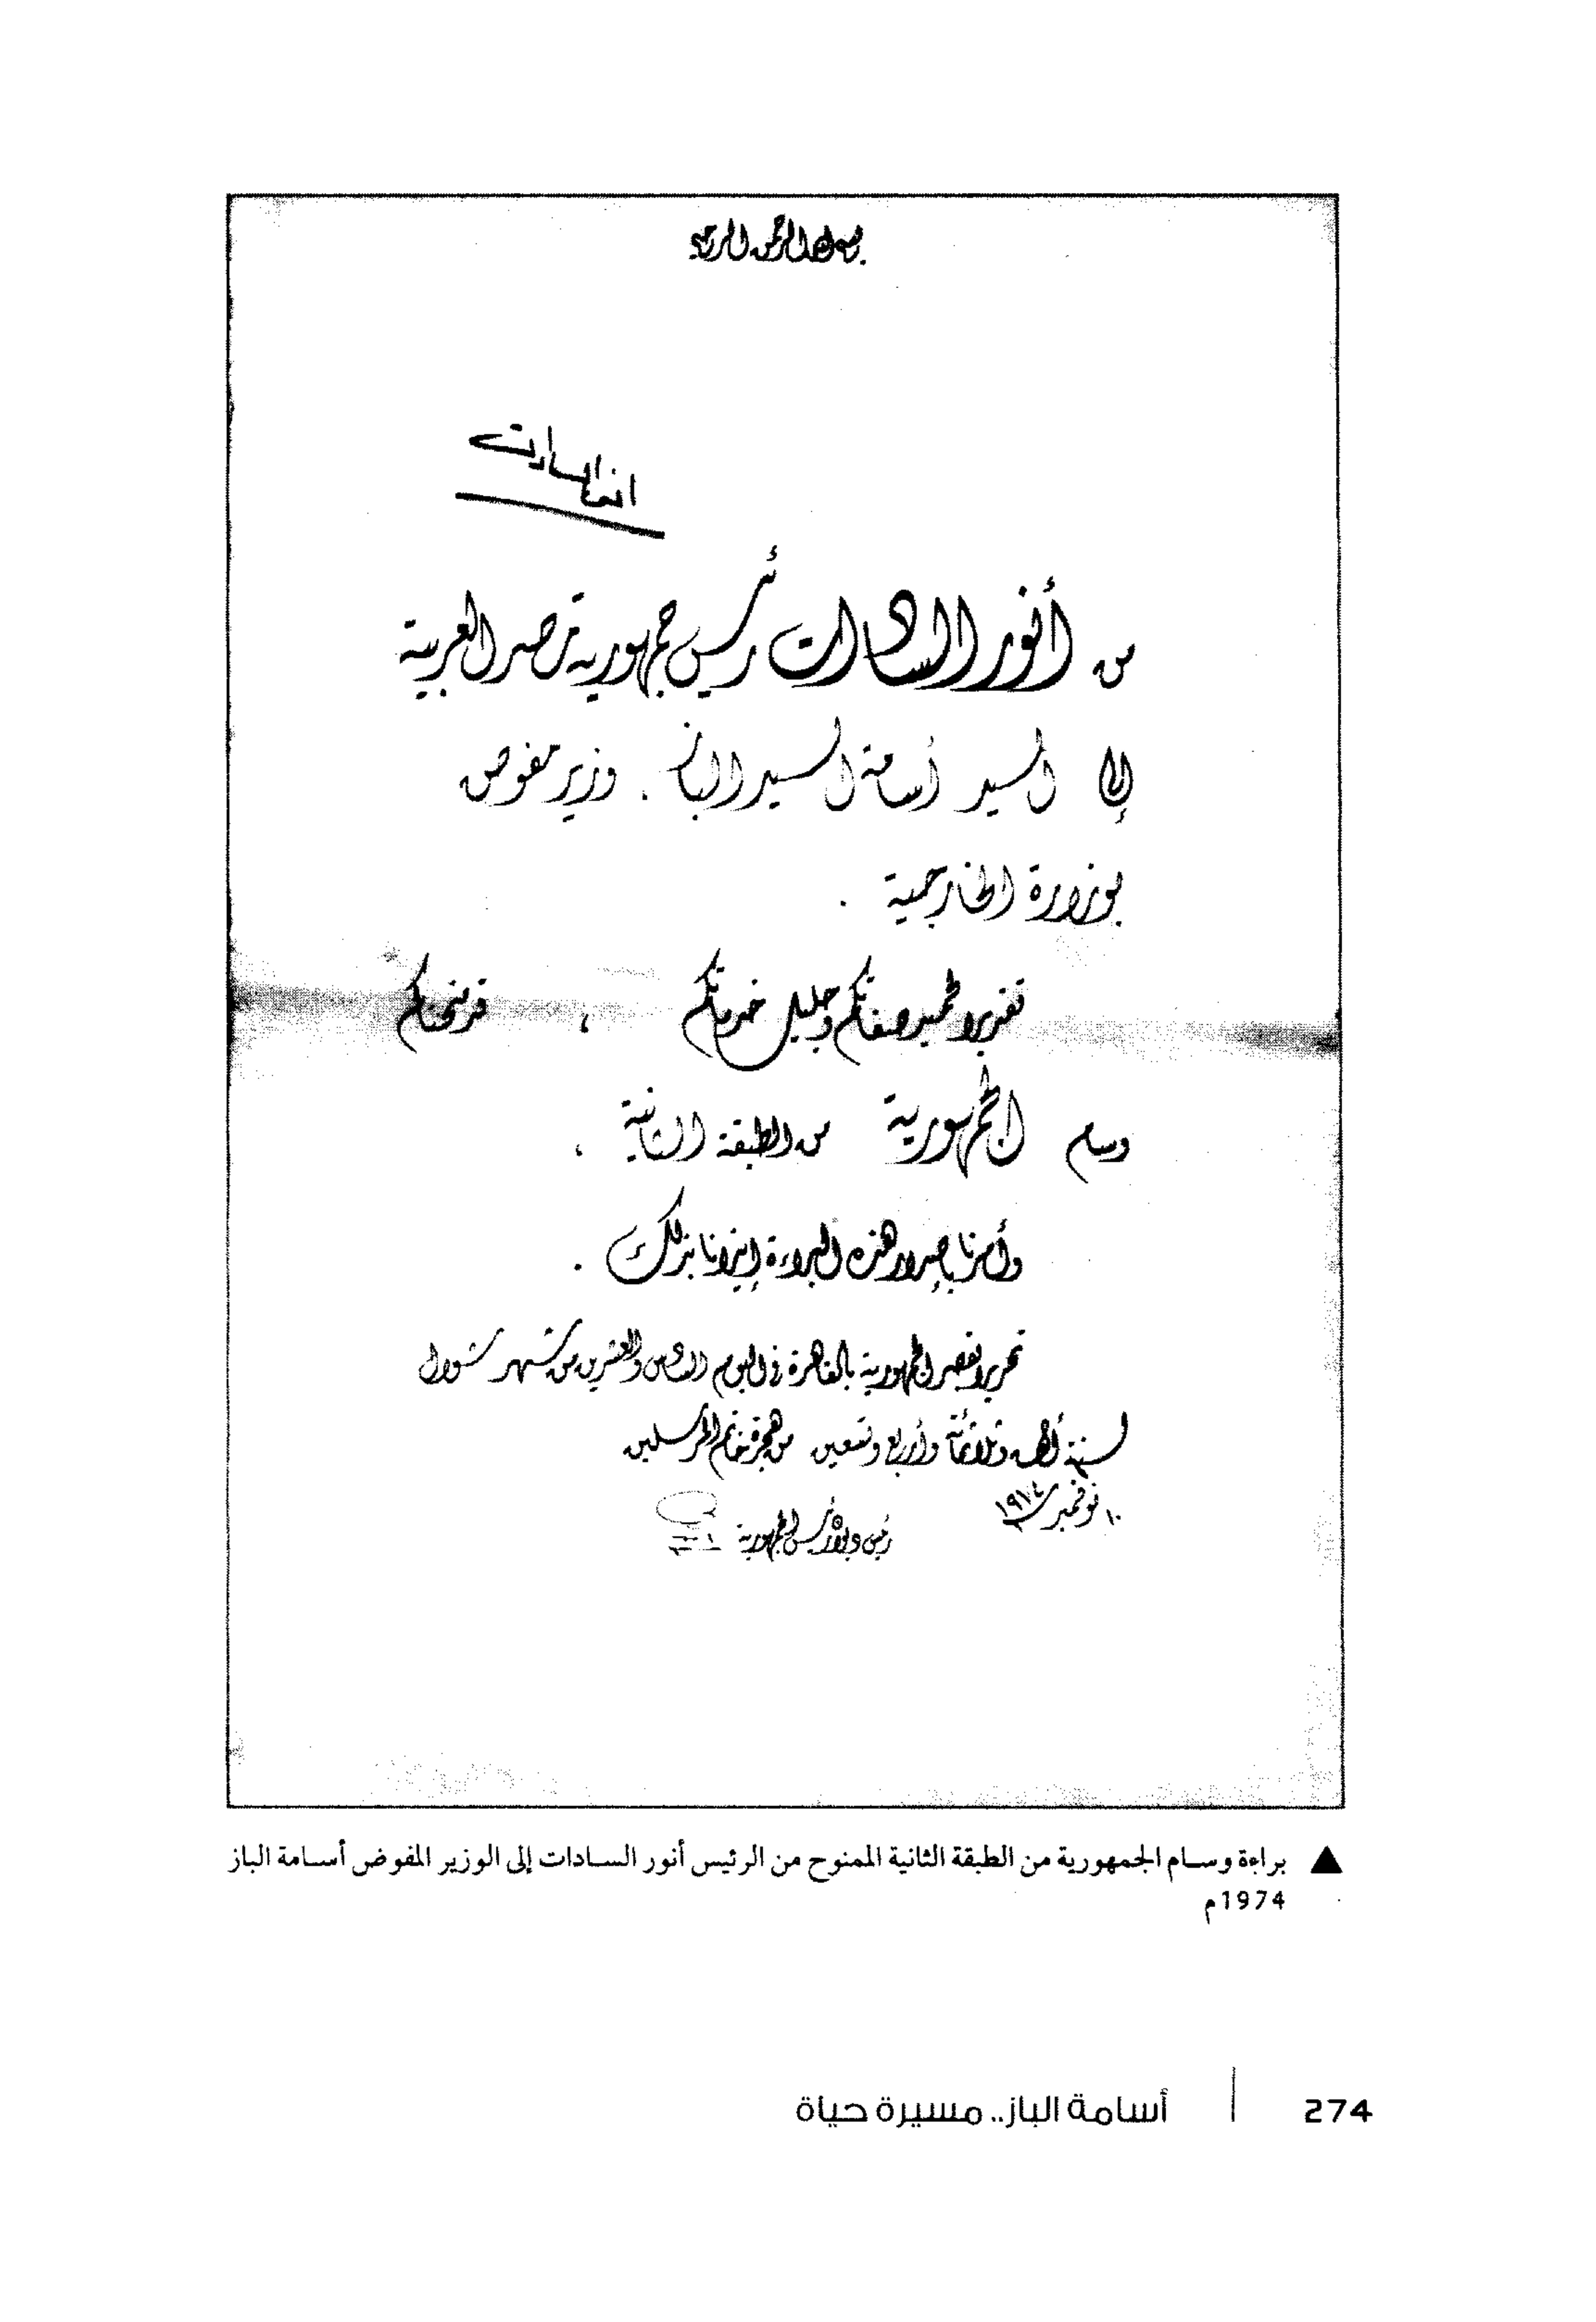 بسم الله الرحمن الرحيم
أنور السادات
من أنور السادات رئيس جمهورية مصر العربية
إلى السيد أسامة السيد الباز . وزير مفوض
بوزارة الخارجية .
تقديرا لحميد صفاتكم وجليل خدماتكم ، قد منحناكم
وسام الجمهورية من الطبقة الثانية ،
وأمرنا بإصدار هذه البراءة إيذانا بذلك .
تحريرا بقصر الجمهورية بالقاهرة في اليوم السادس والعشرين من شهر شوال
لسنة ألف وثلاثمائة وأربع وتسعين من هجرة خاتم المرسلين
١٠ نوفمبر سنة ١٩٧٤
رئيس ديوان رئيس الجمهورية
▲ براءة وسام الجمهورية من الطبقة الثانية الممنوح من الرئيس أنور السادات إلى الوزير المفوض أسامة الباز
1974م
274 | أسامة الباز.. مسيرة حياة